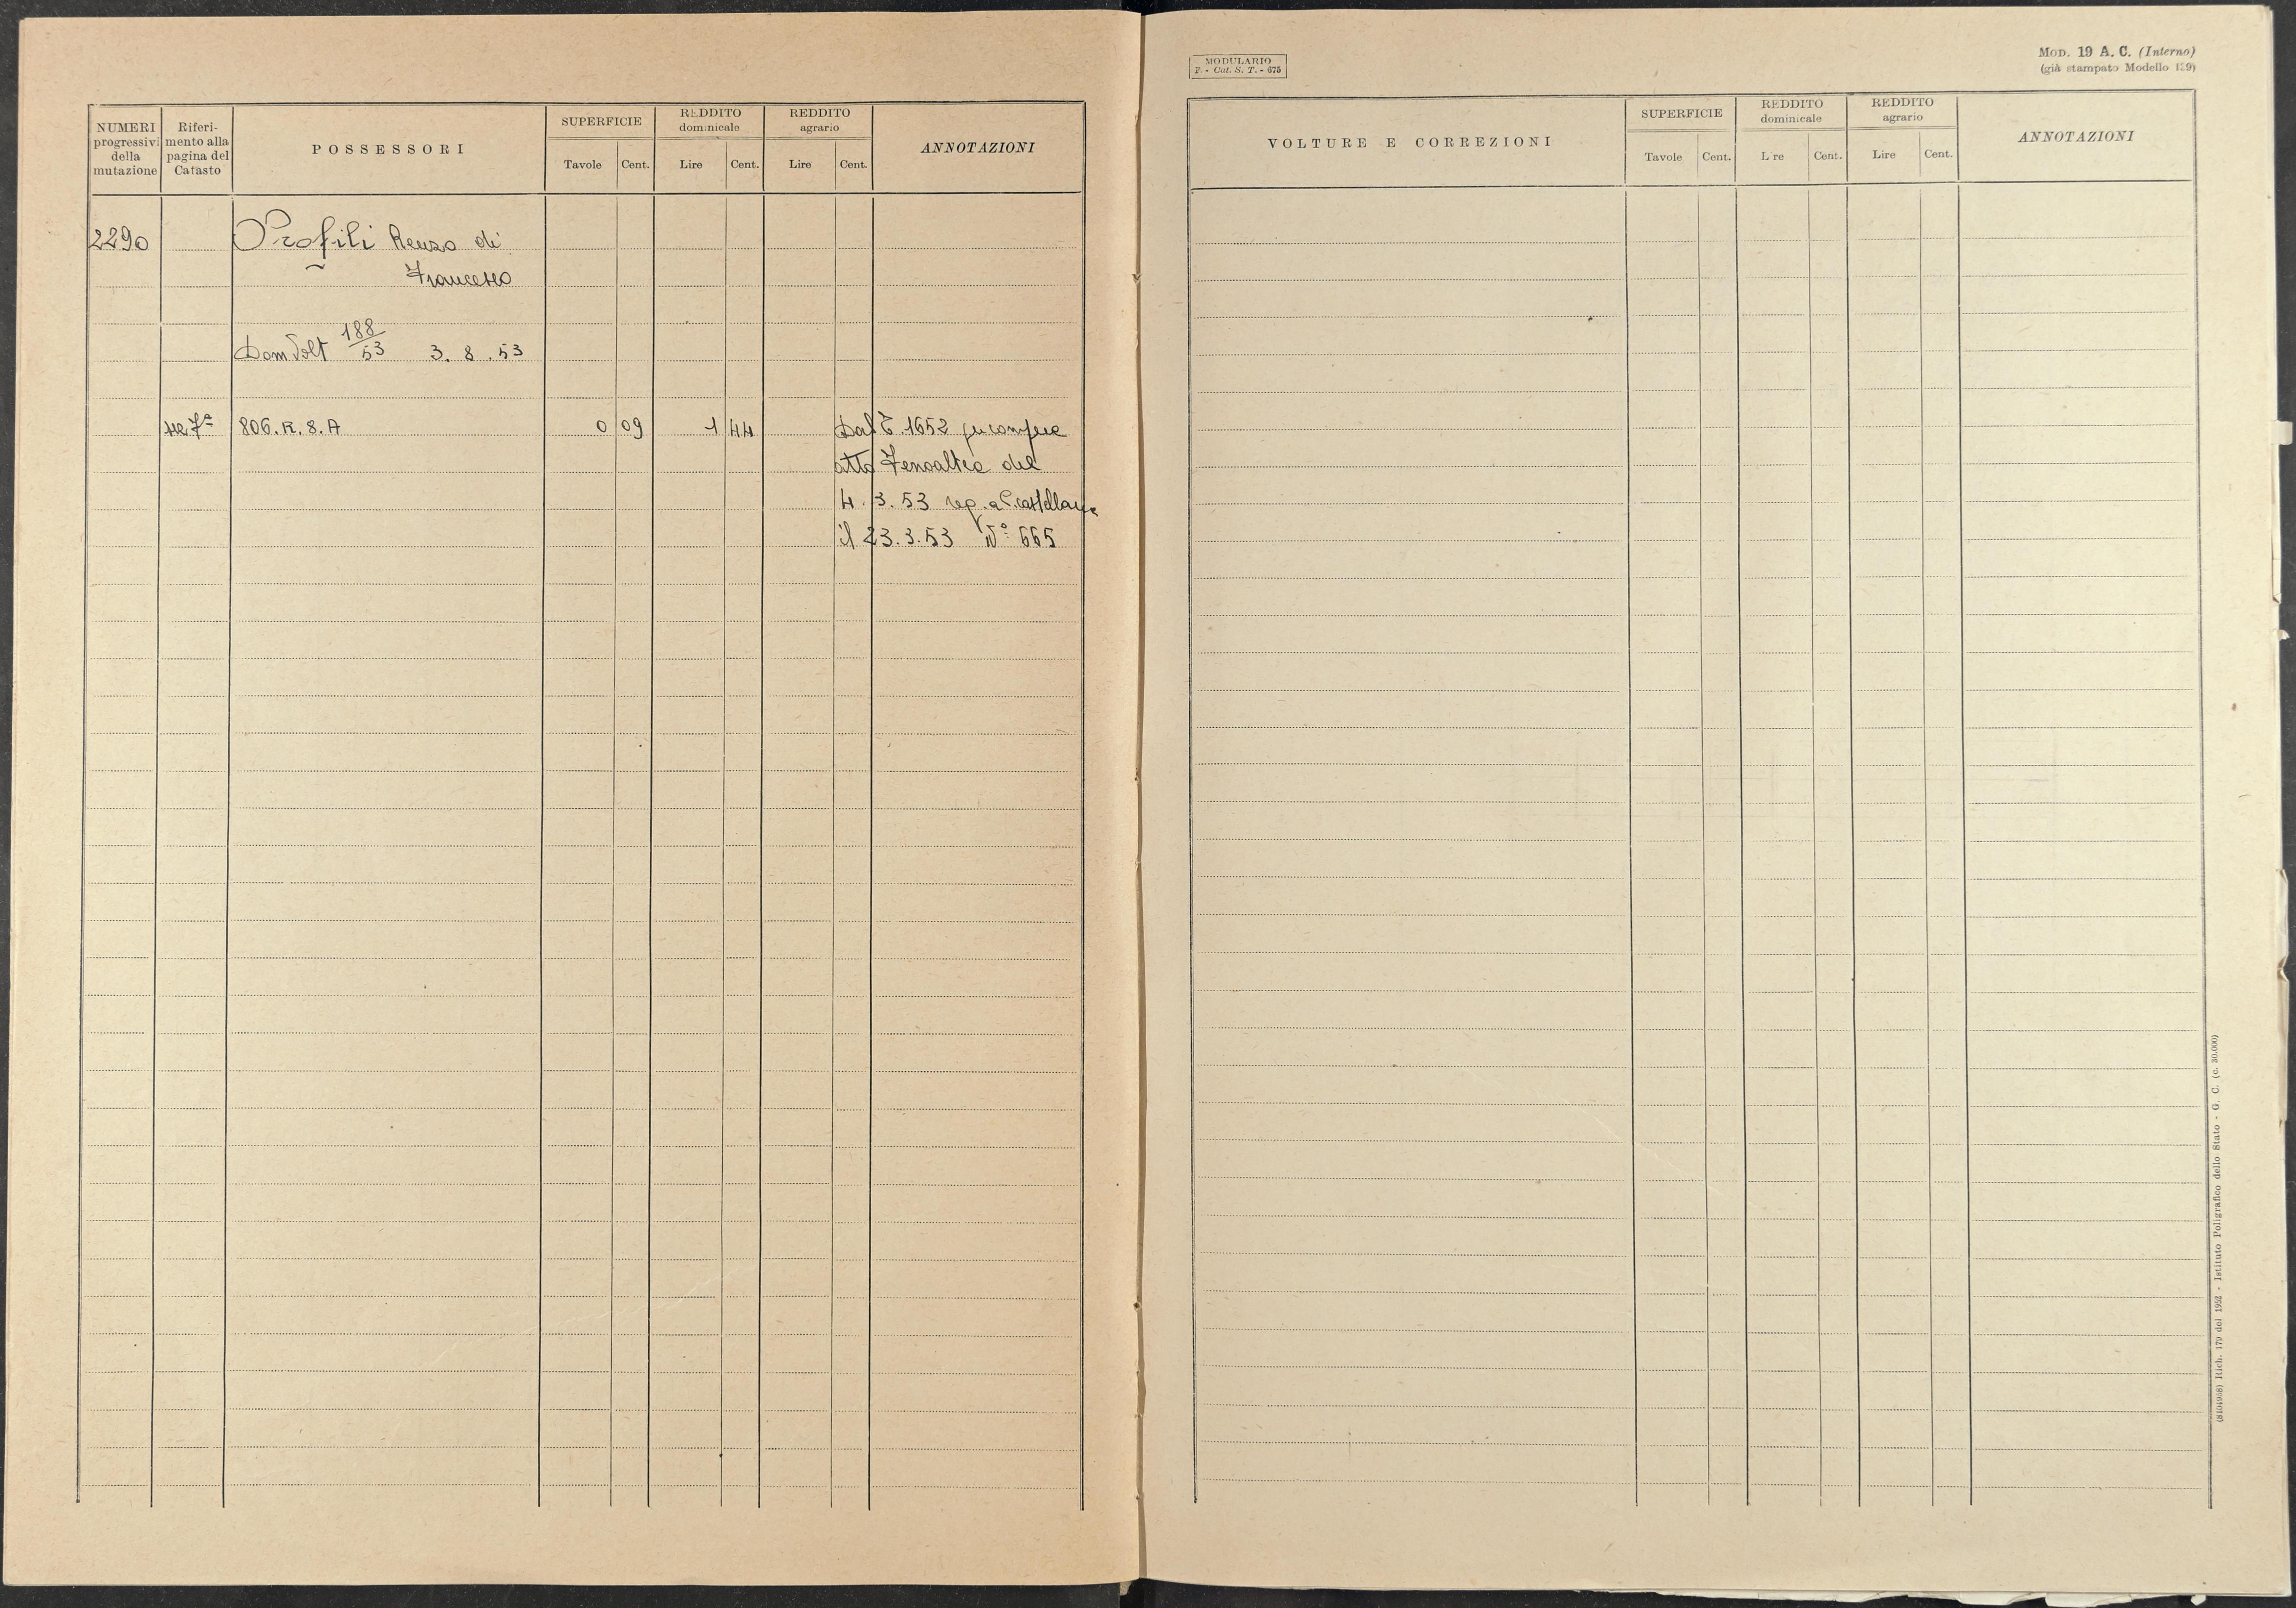 NUMERI progressivi della mutazione
Riferi-mento alla pagina del Catasto
POSSESSORI
SUPERFICIE
Tavole Cent.
REDDITO dominicale
Lire Cent.
REDDITO agrario
Lire Cent.
ANNOTAZIONI
2290 Profili Renzo di
Francesco
Dom Volt 188/53 3.8.53
806.R.8.A 0 09 1 44 Dal C. 1652 per compre
atto Fenoaltea del
4.3.53 reg. a C. castellana
il 23.3.53 N° 665
MODULARIO
F. - Cat. S. T. - 675
MOD. 19 A. C. (Interno)
(già stampato Modello 129)
VOLTURE E CORREZIONI
SUPERFICIE
Tavole Cent.
REDDITO dominicale
L re Cent.
REDDITO agrario
Lire Cent.
ANNOTAZIONI
Rich. 179 del 1952 - Istituto Poligrafico dello Stato - G. C. (c. 30.000)